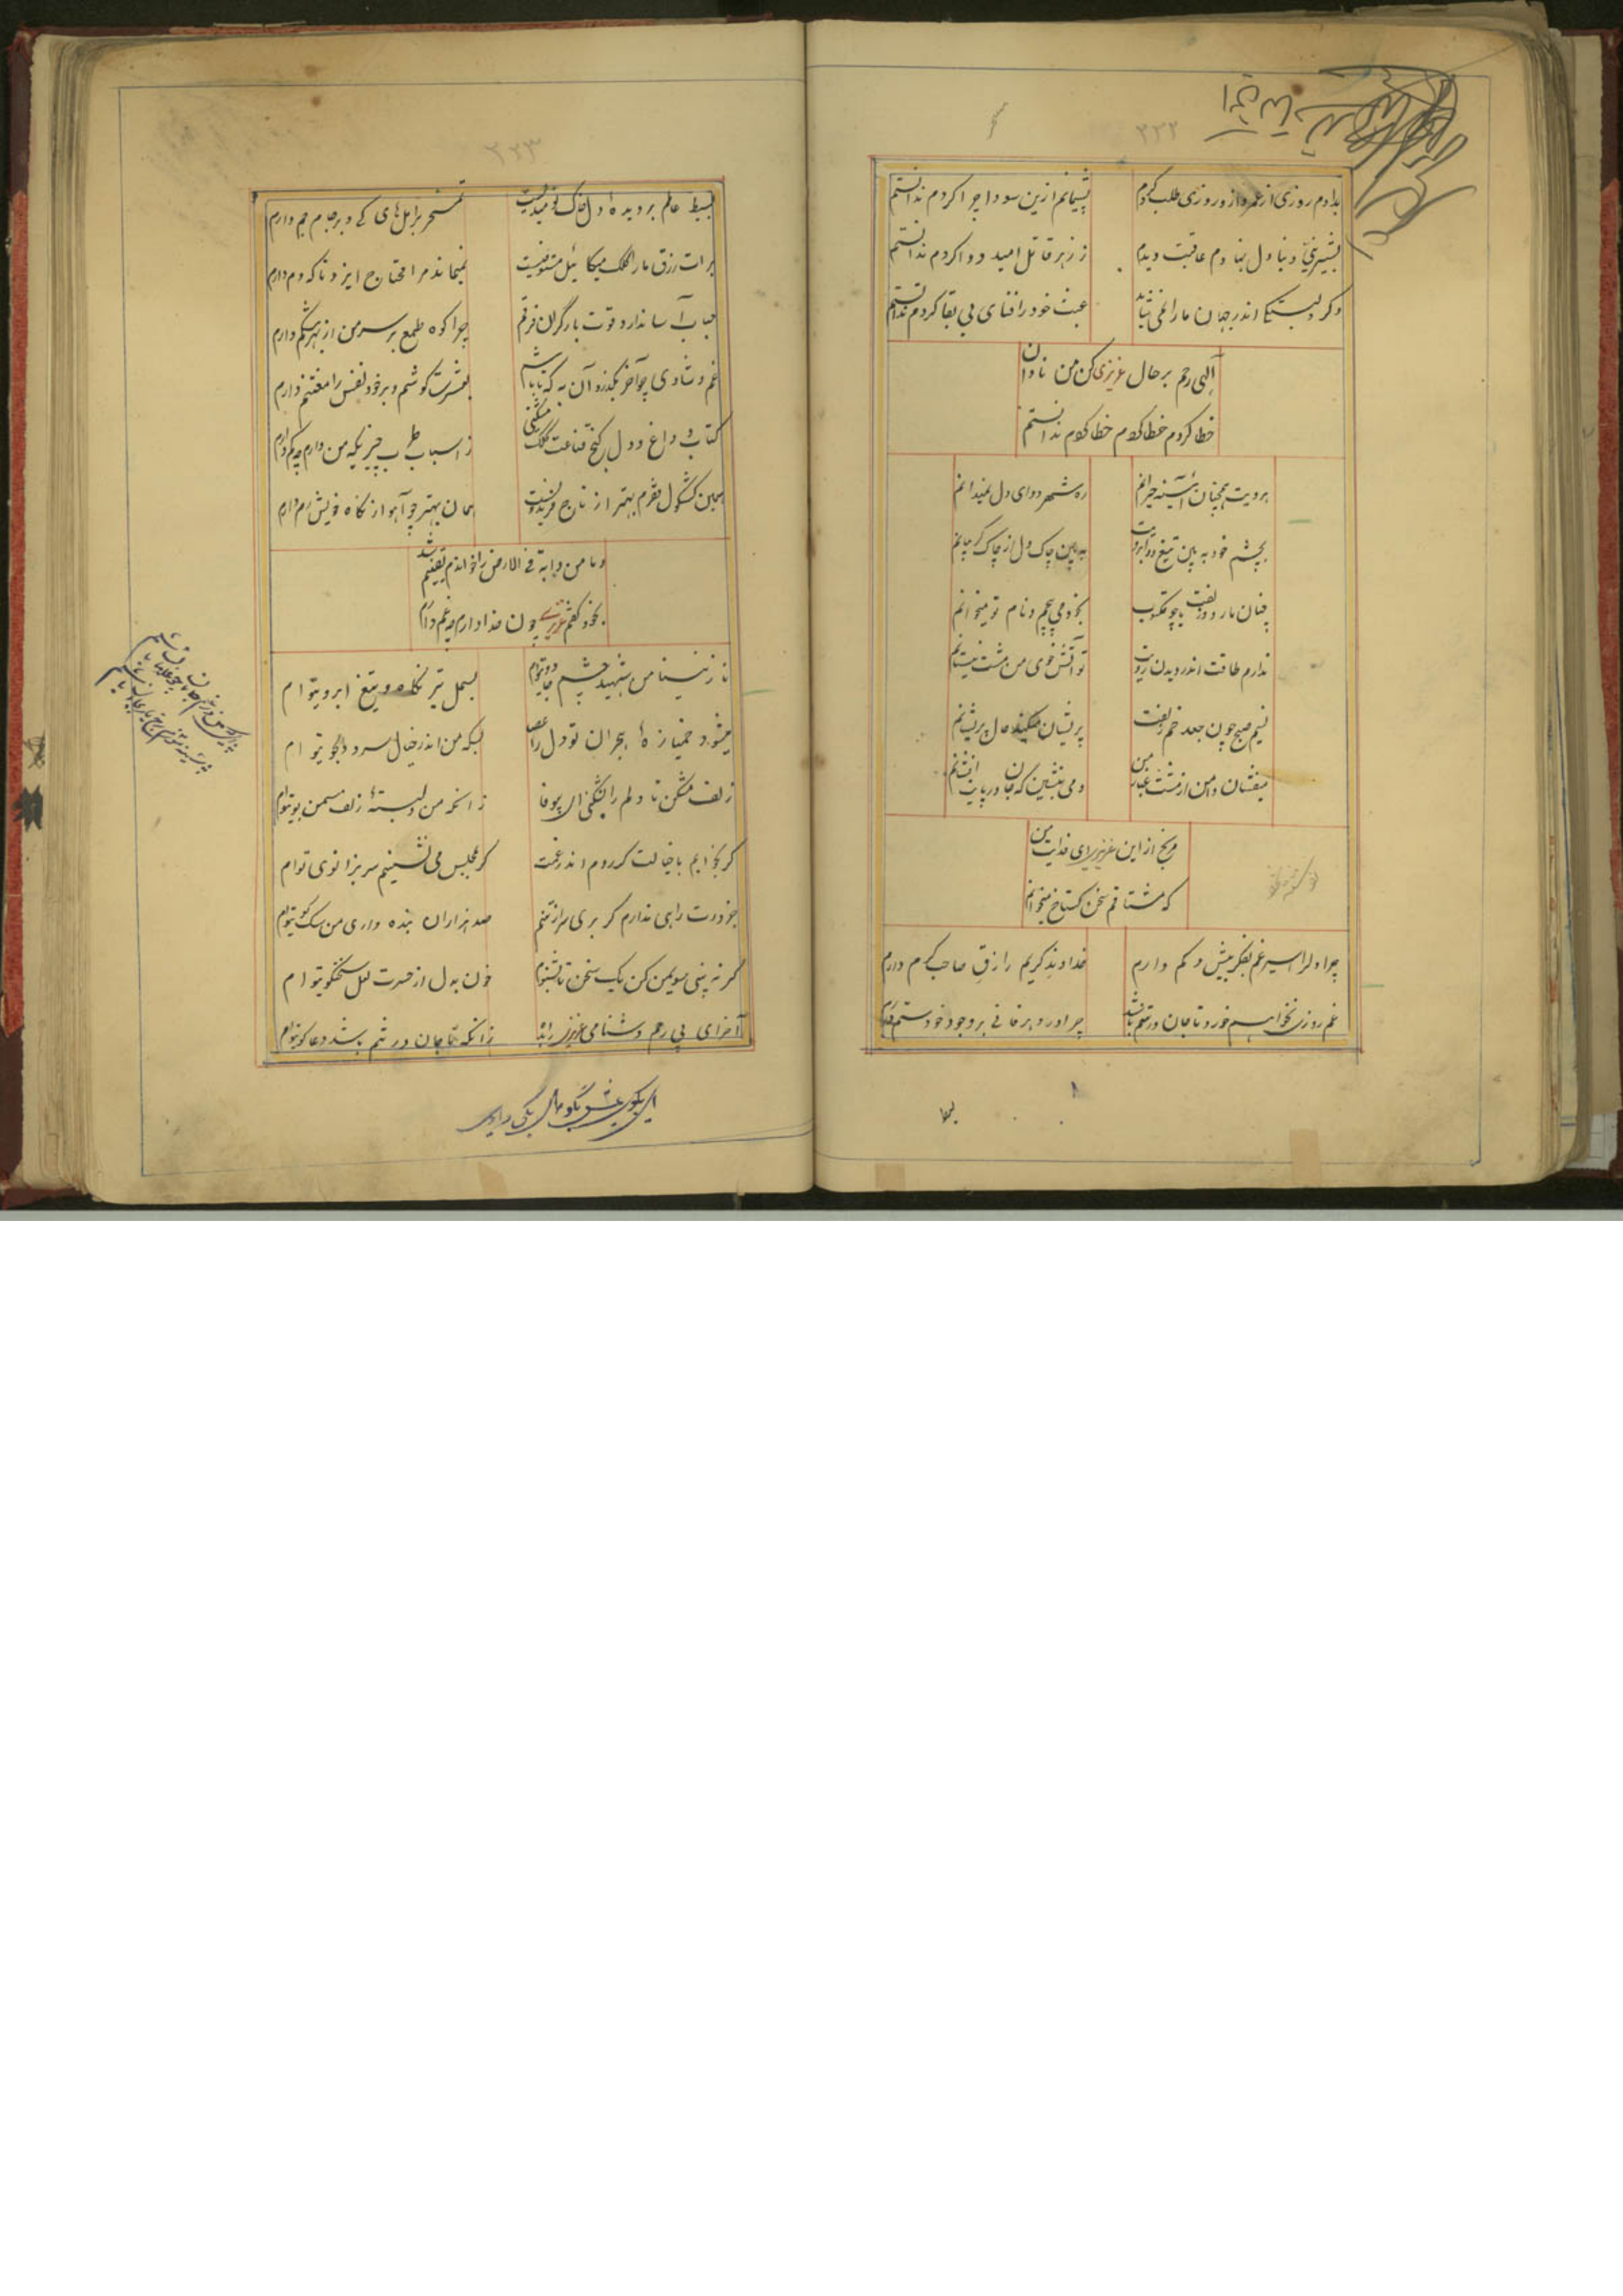 ۲۲۲
بدادم روزی از عمر و از و روزی طلب کردم
پشیمانم ازین سودا چرا کردم ندانستم
بشیرینی دنیا دل نهادم عاقبت دیدم
ز زهر قاتل امید دوا کردم ندانستم
دگر دلبستگی اندر جهان ما را نمی‌شاید
عبث خود را فنای بی بقا کردم ندانستم
الهی رحم بر حال عزیزی کن من نادان
خطا کردم خطا کردم خطا کردم ندانستم
برویت همچنان آئینه حیرانم
ره شهر دوای دل نمیدانم
بچشم خود به بین تیغ دو ابرویت
به بین چاک دل از چاک گریبانم
چنان مار دو زلفت یا چو مکتوب
بخود می پیچم و نام تو میخوانم
ندارم طاقت اندر دیدن رویت
تو آتش خوی من مشت نیستانم
نسیم صبح چون جعد خم زلفت
پریشان میکند حال پریشانم
میفشان دامن از مشت غبار من
دمی بنشین که جان در پایت افشانم
مرنج از این عزیزی ای فدایت من
که مشتاقم سخن گستاخ میخوانم
چرا دل را اسیر غم بفکر بیش و کم دارم
خداوند کریم رازق صاحب کرم دارم
غم روزی نخواهم خورد تا جان در تنم باشد
چرا در وهر فانی بر وجود خود ستم دارم
۲۲۳
بسیط عالم بر دیده‌ٔ دل خاک نومیدیست
تمسخر بر امل‌های کی و بر جام جم دارم
برات رزق ما را کلک میکائیل مستوفیست
نمیماند مرا محتاج ایزد تا که دم دارم
حباب آسا ندارد قوت بار گران فرقم
چرا کوه طمع بر سر من از بهر شکم دارم
غم و شادی چو آخر بگذرد آن به که تا باشم
بعشرت کوشم و بر خود نفس را مغتنم دارم
کتاب و داغ و دل کنج قناعت کلک مشکینی
ز اسباب طرب چیزیکه من دارم چه کم دارم
همین کشکول فقرم بهتر از تاج فریدونست
همان بهتر چو آهو از نگاه خویش رم دارم
و ما من دابة فی الارض را خواندم یقینم شد
بخود گفتم عزیزی چون خدا دارم چه غم دارم
نازنینا من شهید چشم جادوی توام
بسمل تیر نگاه و تیغ ابروی توام
میشود خمیازه‌ٔ هجران تو دل را عصا
بسکه من اندر خیال سرو دلجوی توام
زلف مشکن تا دلم را نشکنی ای بیوفا
زانکه من دلبسته‌ٔ زلف سمن بوی توام
گر بخوابم با خیالت گر روم اندر غمت
گر بمجلس می نشینم سر بزانوی توام
جز درت راهی ندارم گر بری سر از تنم
صد هزاران بنده داری من سگ کوی توام
گر نه بینی سویمن کن یک سخن تا بشنوم
خون بدل از حسرت لعل سخنگوی توام
آخر ای بی رحم دشنامی عزیزی را بده
زانکه تا جان در تنم باشد دعاگوی توام